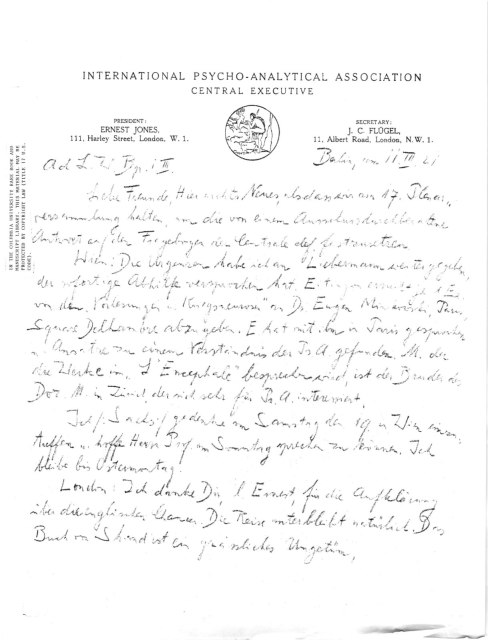 INTERNATIONAL PSYCHO-ANALYTICAL ASSOCIATION
CENTRAL EXECUTIVE
PRESIDENT:
ERNEST JONES,
111, Harley Street, London, W. 1.
SECRETARY:
J. C. FLÜGEL,
11, Albert Road, London, N.W. 1.
IN THE COLUMBIA UNIVERSITY RARE BOOK AND
MANUSCRIPT LIBRARY. THIS MATERIAL MAY BE
PROTECTED BY COPYRIGHT LAW (TITLE 17 U.S.
CODE).
Berlin, am 11. III. 21
Liebe Freunde, Hier nichts Neues, als dass wir am 17. Plenar-
versammlung halten, um die von einem Ausschuss
Antwort auf den Fragebogen der Centrale def. festzusetzen
Wien: Die Urgenz habe ich an Liebermann weitergegeben,
der sofortige Abhilfe versprochen hat. E.
von den Vorlesungen u. Kriegsneurosen an Dr. Eugen Minkowski, Paris,
Square Delambre abzugeben. E hat mit ihm in Paris gesprochen
u. Ansätze zu einem Verständnis der PsA. gefunden. M. der
die Werke im "L'Encephale" besprechen wird, ist der Bruder des
Doz. M. in Zürich, der sich sehr für Ps.A. interessiert.
Ich /: Sachs :/ gedenke am Samstag den 19. in Wien einzu-
treffen u. hoffe Herrn Prof am Sonntag sprechen zu können. Ich
bleibe bis Ostermontag.
London: Ich danke Dir, l. Ernest, für die Aufklärung
über die englischen Chancen. Die Reise unterbleibt natürlich. Das
Buch von Shand ist ein grässliches Ungetüm,